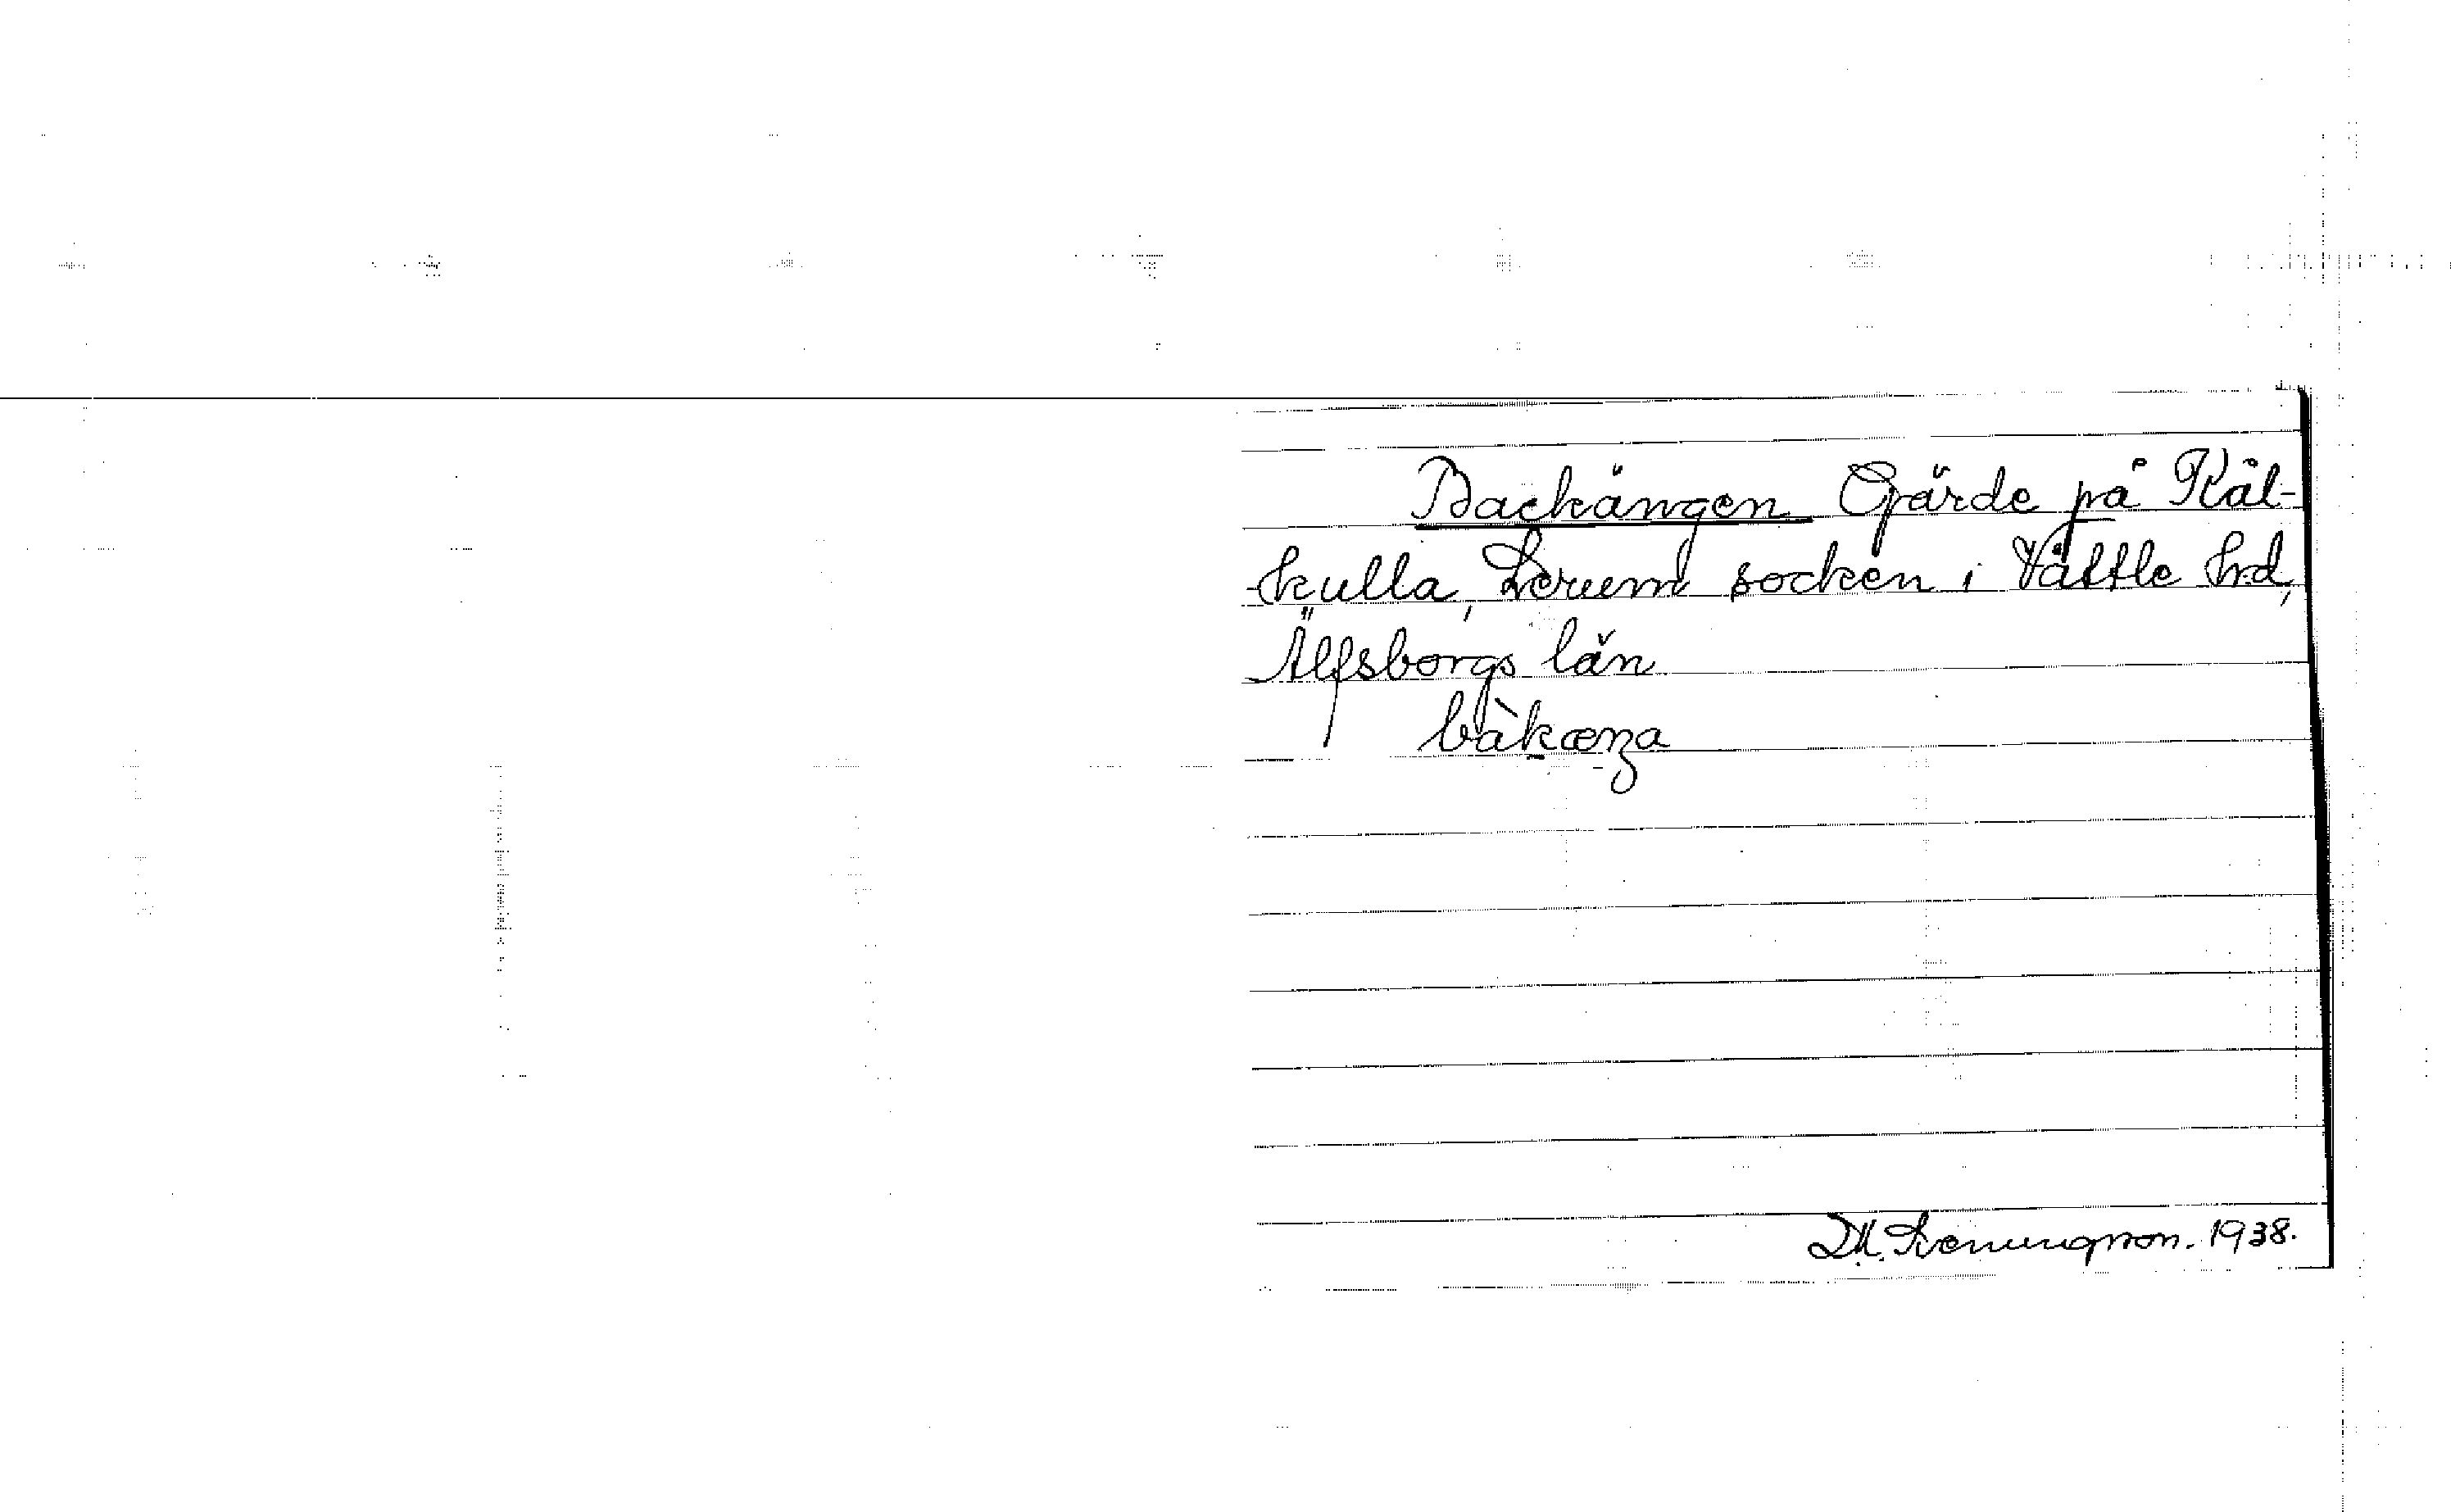 Backängen Gärde på Kål-
kulla, Lerum socken i Vättle hrd,
Älfsborgs län
bàkæŋa
D.M. Svenungsson. 1938.